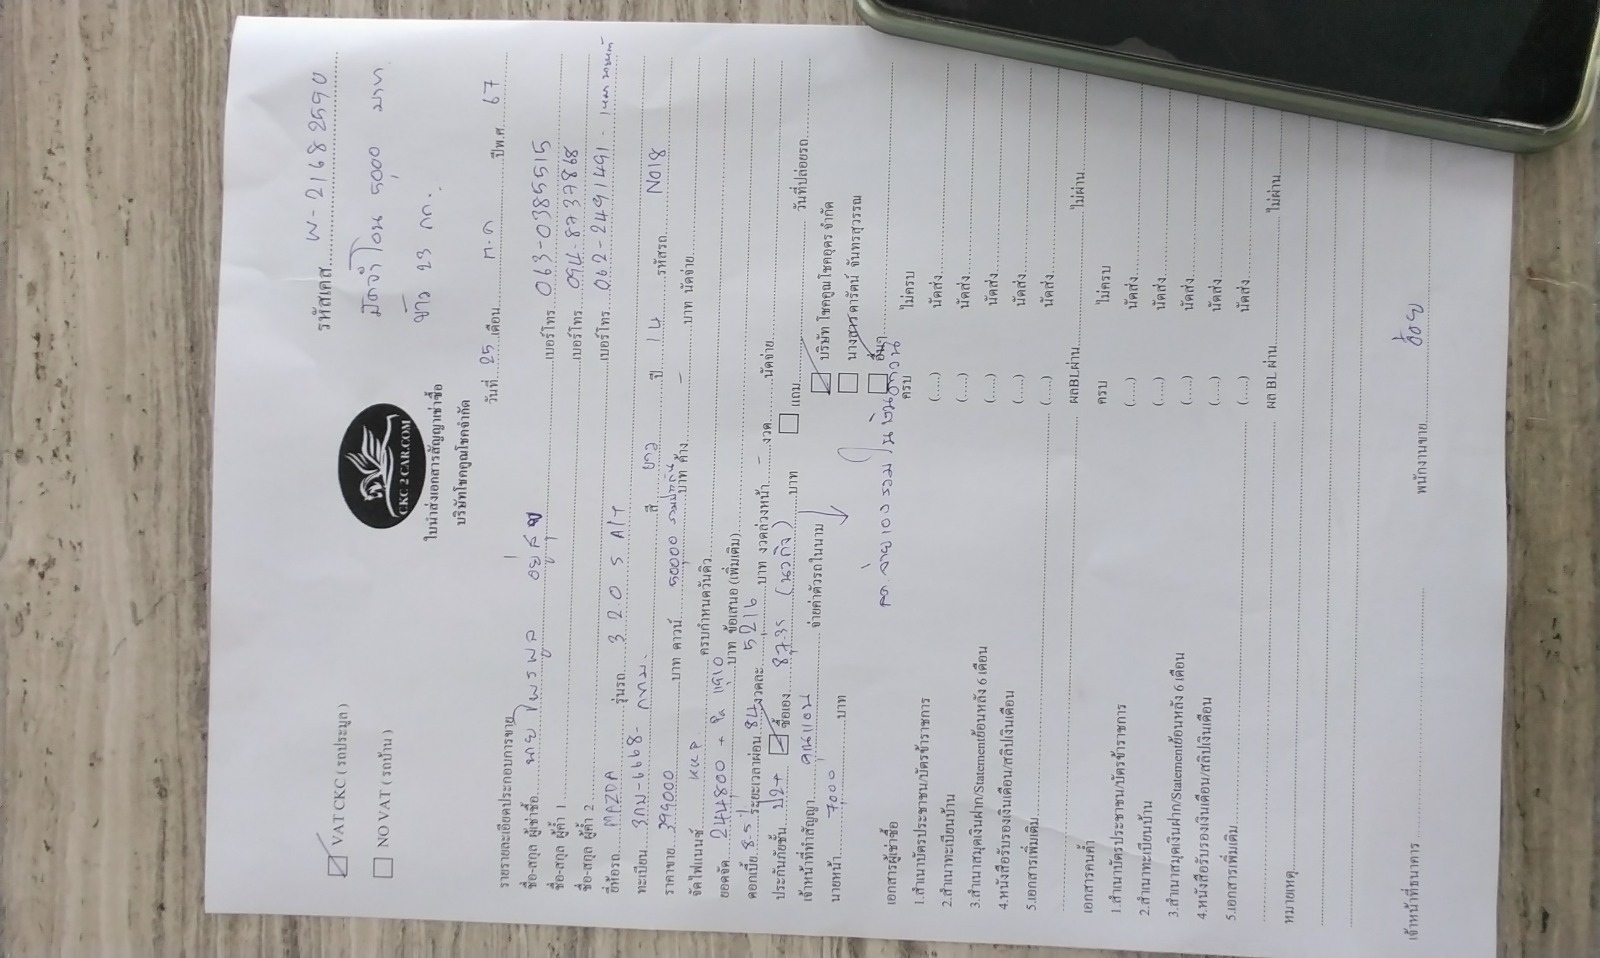 รหัสเคส........ W-21682590
VAT CKC ( รถประมูล )
มัดจำโอน 5,000 บาท
NO VAT ( รถบ้าน )
23 กก.
CKC 2 CAR.COM
ใบนำส่งเอกสารสัญญาเช่าซื้อ
บริษัทโชคคูณโชคจำกัด
วันที่ 25 เดือน ก.ค ปีพ.ศ 67
รายรายละเอียดประกอบการขาย
ชื่อ-สกุล ผู้เช่าซื้อ นาย ไพรพูล เบอร์โทร. 063-0385515
ชื่อ-สกุล ผู้ค้ำ 1 เบอร์โทร. 094-8737868
ชื่อ-สกุล ผู้ค้ำ 2 เบอร์โทร. 062-2491491 -
ยี่ห้อรถ MAZDA รุ่นรถ 3 2.0 S A/T
ทะเบียน 3กม-6668- กทม. สี ขาว ปี 14 รหัสรถ N018
ราคาขาย 399000 บาท ดาวน์ 50000 รวมประกัน บาท ค้าง - บาท นัดจ่าย
จัดไฟแนนซ์ KKP ครบกำหนดวันคิว
ยอดจัด 244,800 + Pa 11,910 บาท ข้อเสนอ (เพิ่มเติม)
ดอกเบี้ย 8.5 ระยะเวลาผ่อน 84 งวดละ 5,216 บาท งวดล่วงหน้า - งวด นัดจ่าย
ประกันภัยชั้น ป2+ ซื้อเอง 8,735 (นวกิจ) บาท แถม วันที่ปล่อยรถ
เจ้าหน้าที่ทำสัญญา คุณแอม จ่ายค่าตัวรถในนาม บริษัท โชคคูณโชคอุดร จำกัด
นายหน้า 7,000 บาท นางสาวดารัตน์ จันทรสุวรรณ
อื่นๆ
เอกสารผู้เช่าซื้อ ครบ ไม่ครบ
1.สำเนาบัตรประชาชน/บัตรข้าราชการ (.....) นัดส่ง
2.สำเนาทะเบียนบ้าน (.....) นัดส่ง
3.สำเนาสมุดเงินฝาก/Statementย้อนหลัง 6 เดือน (.....) นัดส่ง
4.หนังสือรับรองเงินเดือน/สลิปเงินเดือน (.....) นัดส่ง
5.เอกสารเพิ่มเติม (.....) นัดส่ง
ผลBLผ่าน ไม่ผ่าน
เอกสารคนค้ำ ครบ ไม่ครบ
1.สำเนาบัตรประชาชน/บัตรข้าราชการ (.....) นัดส่ง
2.สำเนาทะเบียนบ้าน (.....) นัดส่ง
3.สำเนาสมุดเงินฝาก/Statementย้อนหลัง 6 เดือน (.....) นัดส่ง
4.หนังสือรับรองเงินเดือน/สลิปเงินเดือน (.....) นัดส่ง
5.เอกสารเพิ่มเติม (.....) นัดส่ง
ผล BL ผ่าน ไม่ผ่าน
หมายเหตุ
เจ้าหน้าที่ธนาคาร พนักงานขาย